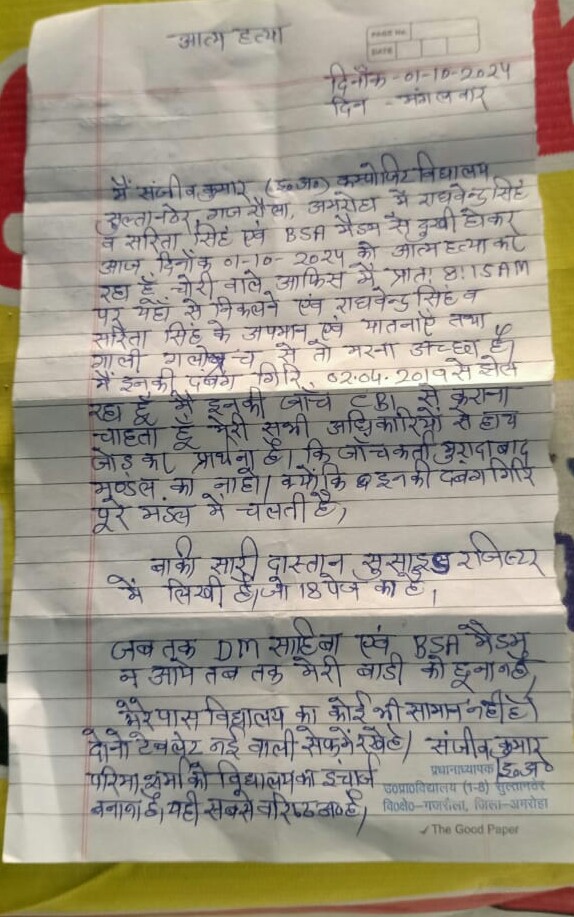 आत्म हत्या
PAGE No.
DATE
दिनाँक - 01-10-2024
दिन - मंगलवार
मैं संजीव कुमार (इ०अ०) कम्पोजिट विद्यालय
सुल्तानठेर, गजरौला, अमरोहा में राघवेन्द्र सिंह
व सरिता सिंह एवं BSA मैडम से दुखी होकर
आज दिनाँक 01-10-2024 को आत्महत्या कर
रहा हूँ वाले आफिस में प्रातः 8:15AM
पर यहाँ से निकलने एवं राघवेन्द्र सिंह व
सरिता सिंह के अपमान एवं यातनाएँ तथा
गाली गलोच से तो मरना अच्छा है।
मैं इनकी दबंग गिरि 02.04.2019 से झेल
रहा हूँ मैं इनकी जाँच CBI से कराना
चाहता हूँ मेरी सभी अधिकारियों से हाथ
जोड़ कर प्राथना है। कि जाँचकर्ता मुरादाबाद
मण्डल का नाहो। क्यों कि इनकी दबंग गिरि
पूरे मंडल में चलती है,
बाकी सारी दास्तान सुसाइड रजिस्टर
में लिखी है, जो 18 पेज का है,
जब तक DM साहिबा एवं BSA मैडम
न आये तब तक मेरी बाडी को छूना नहीं,
मेरे पास विद्यालय का कोई भी सामान नहीं है।
दोनो टेबलेट नई वाली सेफ में रखे है। संजीव कुमार
परिमा शर्मा को विद्यालय का इंचार्ज इ०अ०
बनाना है, यही सबसे वरिष्ठ है,
प्रधानाध्यापक
उ०प्रा०विद्यालय (1-8) सुल्तानठेर
वि०क्षे०-गजरौला, जिला-अमरोहा
The Good Paper